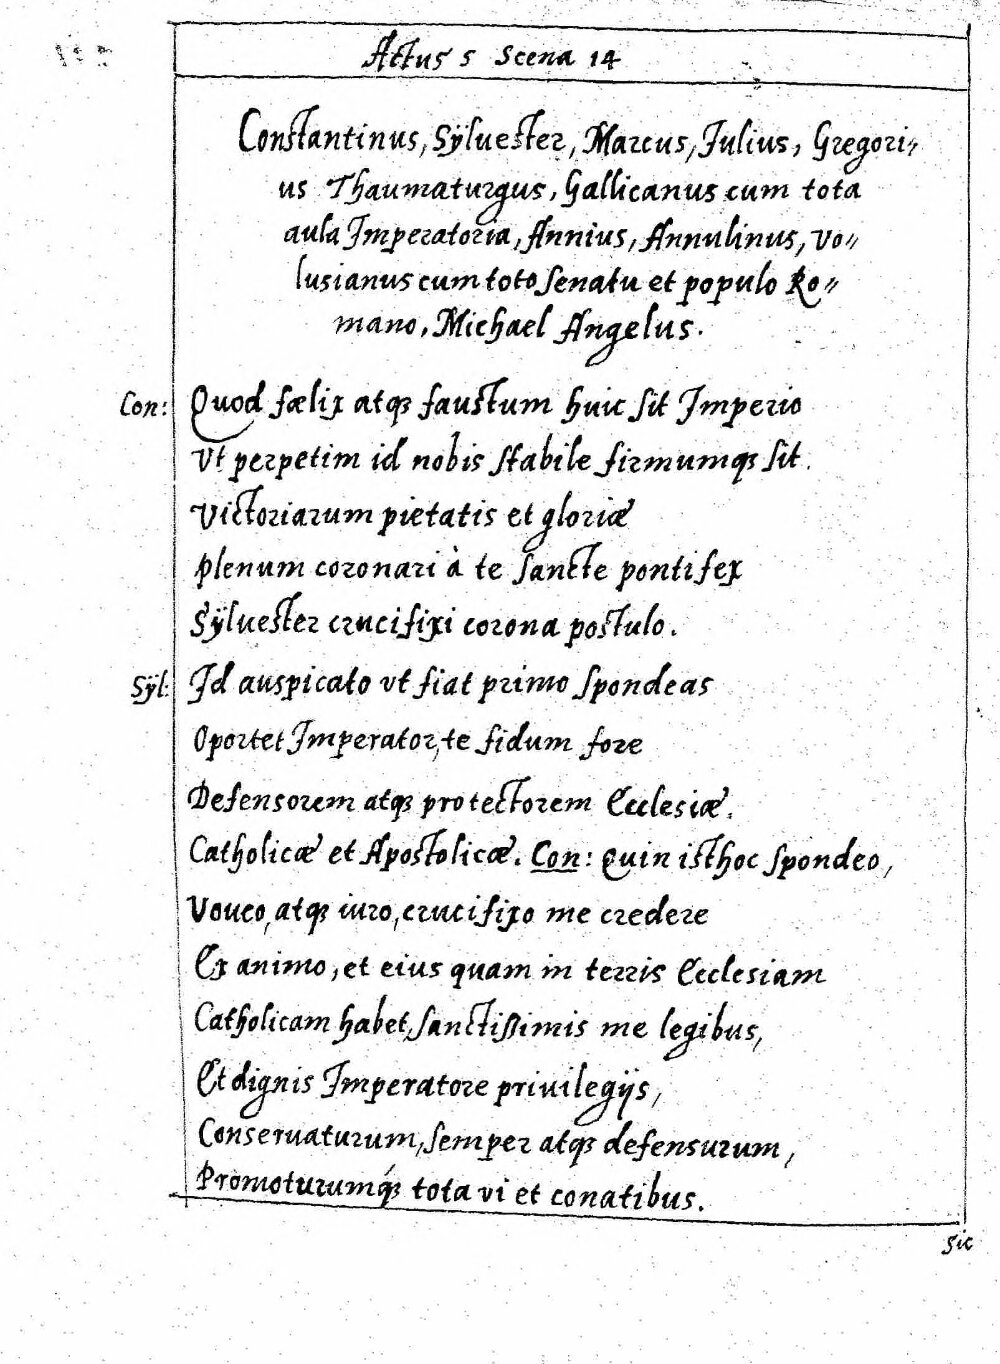 Actus 5 Scena 14
Constantinus, Sÿluester, Marcus, Julius, Gregori〃
us Thaumaturgus, Gallicanus cum tota
aula Imperatoria, Annius, Annulinus, Vo〃
lusianus cum toto ſenatu et populo Ro〃
mano, Michael Angelus.
Con: Quod fælix atqꝫ faustum huic ſit Imperio
Vt perpetim id nobis ſtabile firmumqꝫ ſit.
Victoriarum pietatis et gloriæ
Plenum coronari à te ſancte pontifex
Sÿluester crucifixi corona postulo.
Sÿl: Id auspicato vt fiat primo ſpondeas
Oportet Imperator, te fidum fore
Defensorem atqꝫ protectorem Ecclesiæ.
Catholicæ et Apostolicæ. Con: Quin isthoc ſpondeo,
Voueo, atqꝫ iuro, crucifixo me credere
Ex animo, et eius quam in terris Ecclesiam
Catholicam habet, ſanctiſsimis me legibus,
Et dignis Imperatore priuilegijs,
Conseruaturum, ſemper atqꝫ defensurum,
Promoturumqꝫ́ tota vi et conatibus.
Sic